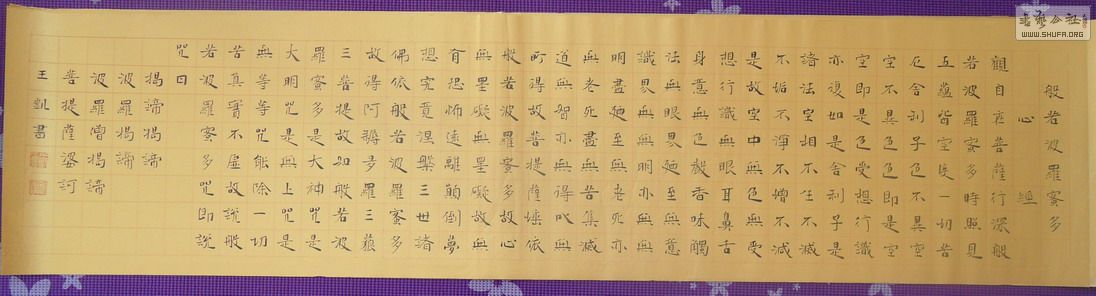 般若波羅蜜多
心經
觀自在菩薩行深般
若波羅蜜多時照見
五蘊皆空度一切苦
厄舍利子色不異空
空不異色色即是空
空即是色受想行識
亦復如是舍利子是
諸法空相不生不滅
不垢不淨不增不減
是故空中無色無受
想行識無眼耳鼻舌
身意無色聲香味觸
法無眼界廼至無意
識界無無明亦無無
明盡廼至無老死亦
無老死盡無苦集滅
道無智亦無得以無
所得故菩提薩埵依
般若波羅蜜多故心
無罣礙無罣礙故無
有恐怖遠離顛倒夢
想究竟涅槃三世諸
佛依般若波羅蜜多
故得阿耨多羅三藐
三菩提故知般若波
羅蜜多是大神咒是
大明咒是無上咒是
無等等咒能除一切
苦真實不虛故說般
若波羅蜜多咒即說
咒曰
揭諦揭諦
波羅揭諦
波羅僧揭諦
菩提薩婆訶
王凱書
書藝公社
WWW.SHUFA.ORG